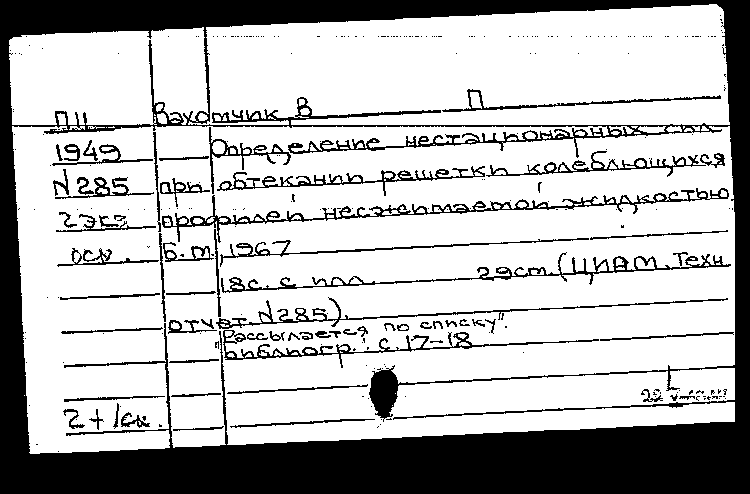 П11 Вахомчик, В П
1949 Определение нестационарных сил
N285 при обтекании решетки колеблющихся
2 экз профилей несжимаемой жидкостью
осн. Б.м., 1967
18с. с илл. 29см. (ЦИАМ. Техн
отчет. N285).
"Рассылается по списку".
Библиогр.: с. 17-18
2+1ск. 22